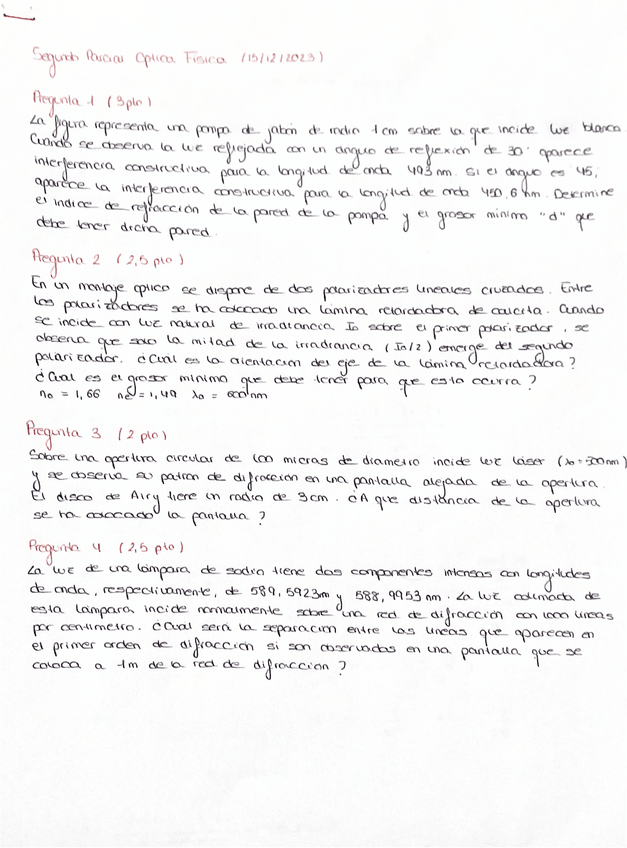 Segundo Parcial Optica Fisica (15/12/2023)
Pregunta 1 (3pto)
La figura representa una pompa de jabón de radio 1cm sobre la que incide luz blanca.
Cuando se observa la luz reflejada con un angulo de reflexión de 30° aparece
interferencia constructiva para la longitud de onda 493 nm. Si el angulo es 45,
aparece la interferencia constructiva para la longitud de onda 450,6 nm. Determine
el indice de refracción de la pared de la pompa y el grosor minimo "d" que
debe tener dicha pared.
Pregunta 2 (2,5 pto)
En un montaje optico se dispone de dos polarizadores lineales cruzados. Entre
los polarizadores se ha colocado una lamina retardadora de calcita. Cuando
se incide con luz natural de irradiancia Io sobre el primer polarizador, se
observa que solo la mitad de la irradiancia (Io/2) emerge del segundo
polarizador. ¿Cual es la orientacion del eje de la lámina retardadora?
¿Cual es el grosor minimo que debe tener para que esto ocurra?
no = 1,66 ne = 1,49 λo = 600nm
Pregunta 3 (2 pto)
Sobre una apertura circular de 100 micras de diametro incide luz láser (λo = 500nm)
y se observa su patron de difraccion en una pantalla alejada de la apertura.
El disco de Airy tiene un radio de 3cm. ¿A que distancia de la apertura
se ha colocado la pantalla?
Pregunta 4 (2,5 pto)
La luz de una lámpara de sodio tiene dos componentes intensas con longitudes
de onda, respectivamente, de 589,5923m y 588,9953 nm. La luz colimada de
esta lampara incide normalmente sobre una red de difracción con 1000 lineas
por centimetro. ¿Cual será la separacion entre las lineas que aparecen en
el primer orden de difraccion si son observadas en una pantalla que se
coloca a 1m de la red de difraccion?